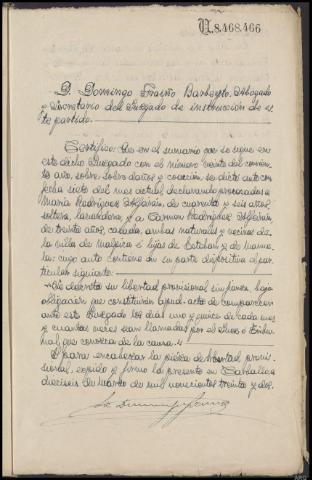 N.8.468.466
D. Domingo Barbeyto, Abogado
y Secretario del Juzgado de instrucción de es
te partido.
Certifico: Que en el sumario que se sigue en
este dicho Juzgado con el número veinte del corrien
te año, sobre daños y coacción, se dictó auto con
fecha siete del mes actual declarando procesadas a
María Rodríguez de cuarenta y seis años,
soltera, lavandera, y a Carmen Rodríguez
de treinta años, casada, ambas naturales y vecinas de
la villa de Malpica é hijas de Esteban y de
cuyo auto contiene en su parte dispositiva el par
ticular siguiente:
Se decreta su libertad provisional sin fianza bajo
obligación que constituirán apud-acta de comparecer
ante este Juzgado los días uno y quince de cada mes
y cuantas veces sean llamadas por el Juez ó Tribu
nal que conozca de la causa.
Y para encabezar la pieza de libertad provi
sional, expido y firmo la presente en Carballo a
dieciseis de Marzo de mil novecientos treinta y dos.